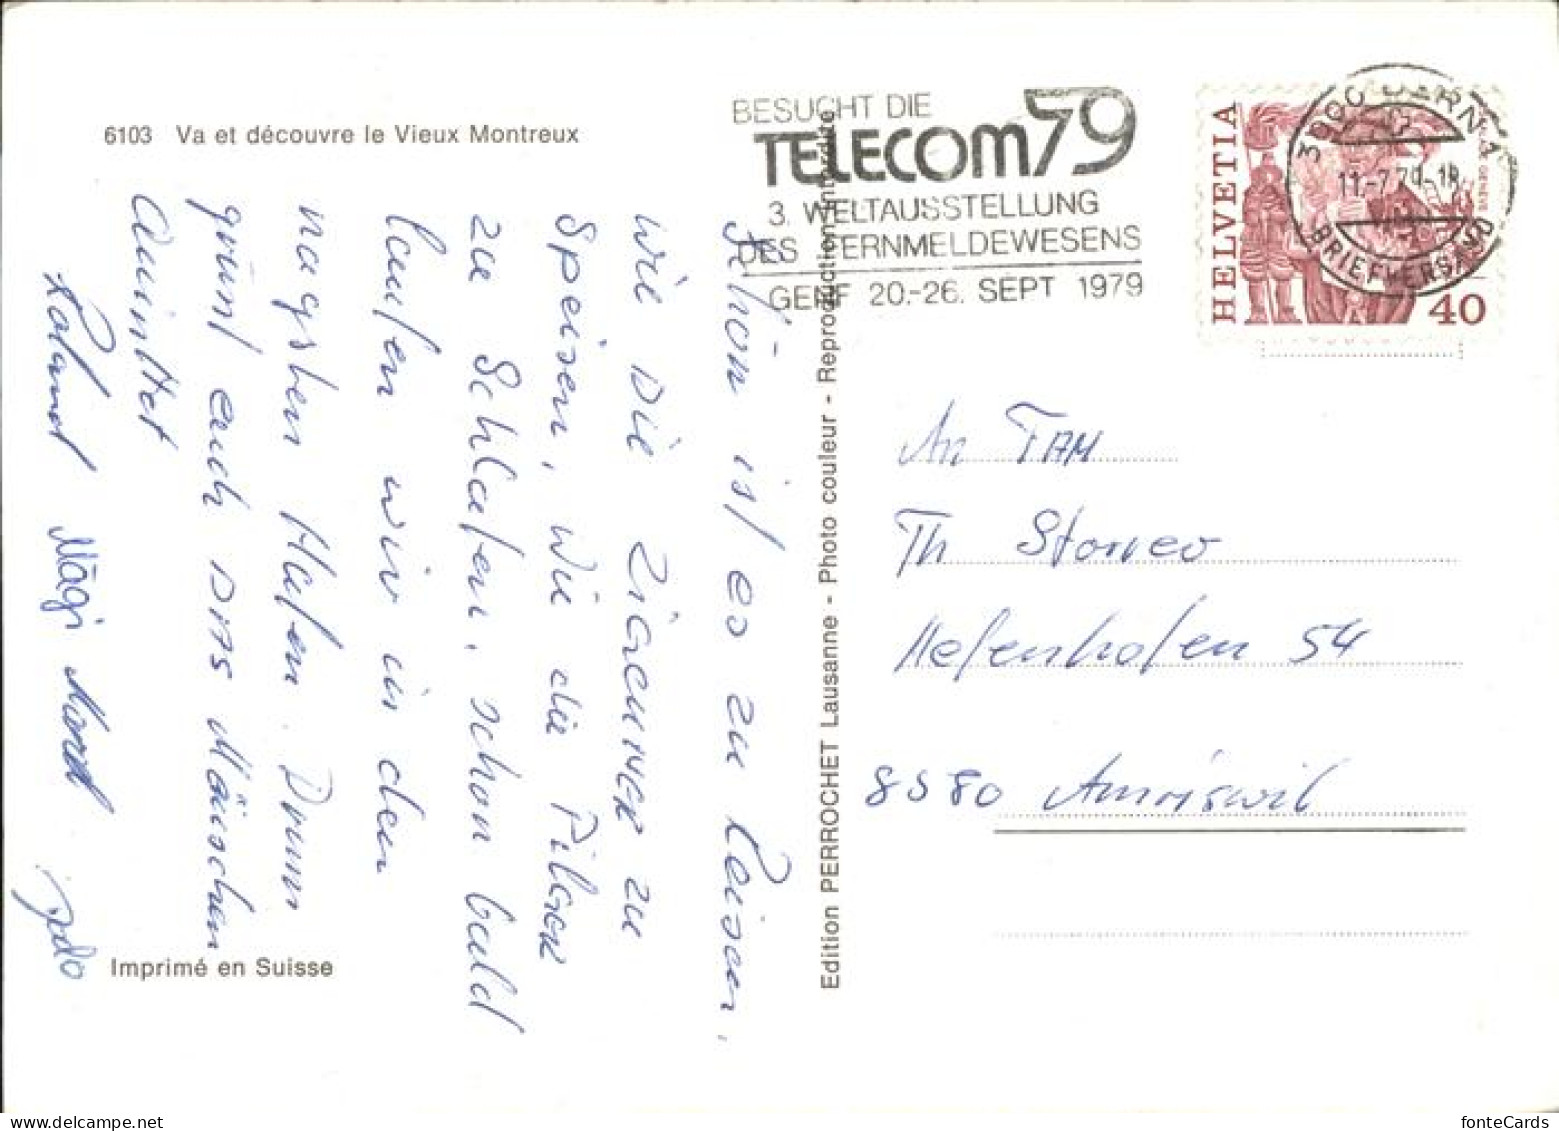 6103 Va et découvre le Vieux Montreux
BESUCHT DIE
TELECOM 79
3. WELTAUSSTELLUNG
DES FERNMELDEWESENS
GENF 20.-26. SEPT 1979
3000 BERN 1
11.-7.79-18
BRIEFVERSAND
HELVETIA
40
Schön ist es zu Reisen,
wie die Zigeuner zu
Speisen, wie die Pilger
zu Schlafen, schon bald
laufen wir in den
nagsten Hafen. Drum
grüsst euch das Mäischen
Quintet
Roland Mägi Marcel
An FAM
Th Storrer
Hefenhofen 54
8580 Amriswil
Edition PERROCHET Lausanne - Photo couleur - Reproduction interdite
Imprimé en Suisse
fonteCards